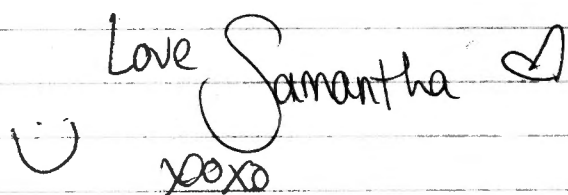 Love Samantha
xooxo